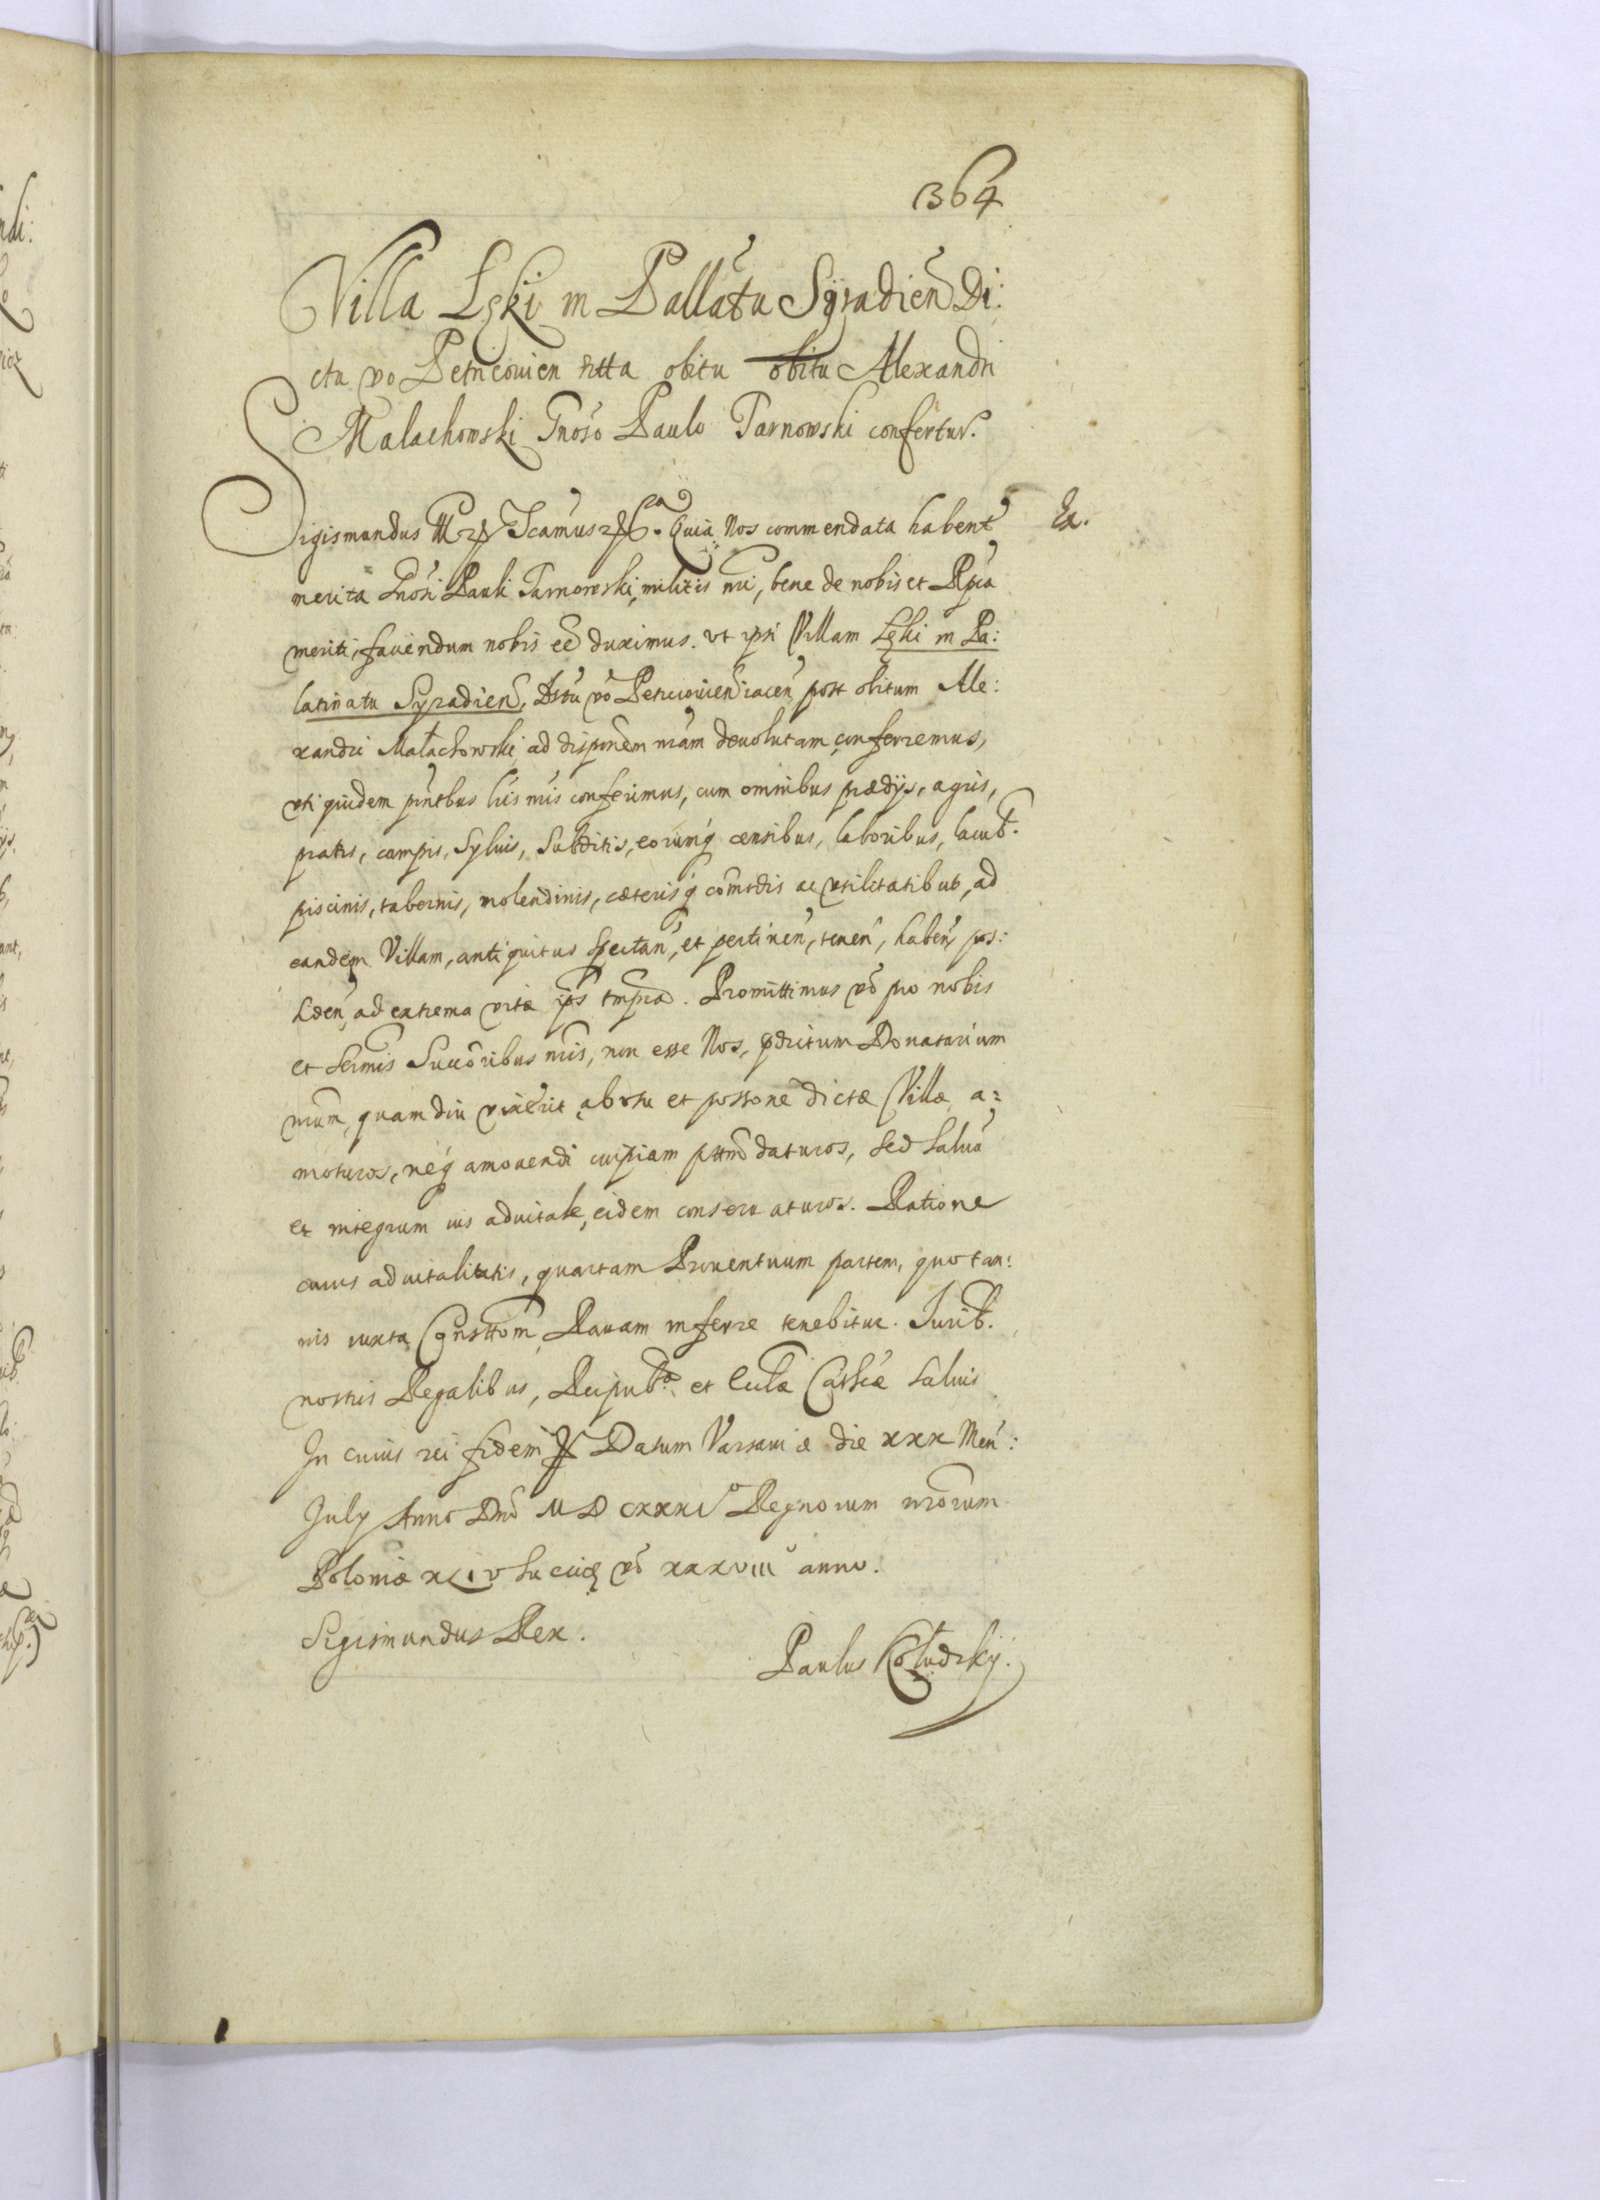 364
Villa Lęki in Pallatu Syradien Di:
ctu vo Petricouien sitta obitu obitu Alexandri
Małachowski Gnoso Paulo Tarnowski confertur.
Sigismundus III Quia Nos commendata habent Ex.
merita Gnosi Pauli Tarnowski, militis nri, bene de nobis et Rpca
meriti, fauendum nobis ee duximus. vt ipsi Villam Lęki in Pa:
latinatu Syradien, Dstu vo Petricouien iacen post obitum Ale:
xandri Małachowski, ad disponem nram deuolutam conferremus,
vti quidem pntbus lris nris conferimus, cum omnibus prædijs, agris,
pratis, campis, Syluis, Subditis, eorumq censibus, laboribus, lacub.
piscinis, tabernis, molendinis, cæterisq comodis ac vtilitatibus, ad
eandem Villam, antiquitus Spectan, et pertinen, tenen, haben, pos:
siden, ad extrema vitæ ips tmpra. Promittimus vo pro nobis
et Sermis Succoribus nris, non esse Nos, pdictum Donatarium
nrum, quam diu vixerit, ab vsu et possone dictæ Villæ a:
moturos, neq amouendi cuipiam pttem daturos, sed saluo
et integrum ius aduitale, eidem conseruaturos. Ratione
cuius aduitalitatis, quartam Prouentuum partem, quotan:
nis iuxta Consttom, Rauam inferre tenebitur. Jurib.
nostris Regalibus, Reipub. et Eccl Cathcæ saluis
In cuius rei fidem Datum Varsauiæ die XXX Men:
July Anno Dni MDCXXXI Regnorum nrorum
Poloniæ XLIV Sueciæ vo XXXVIII anno.
Sigismundus Rex.
Paulus Kołudzky.